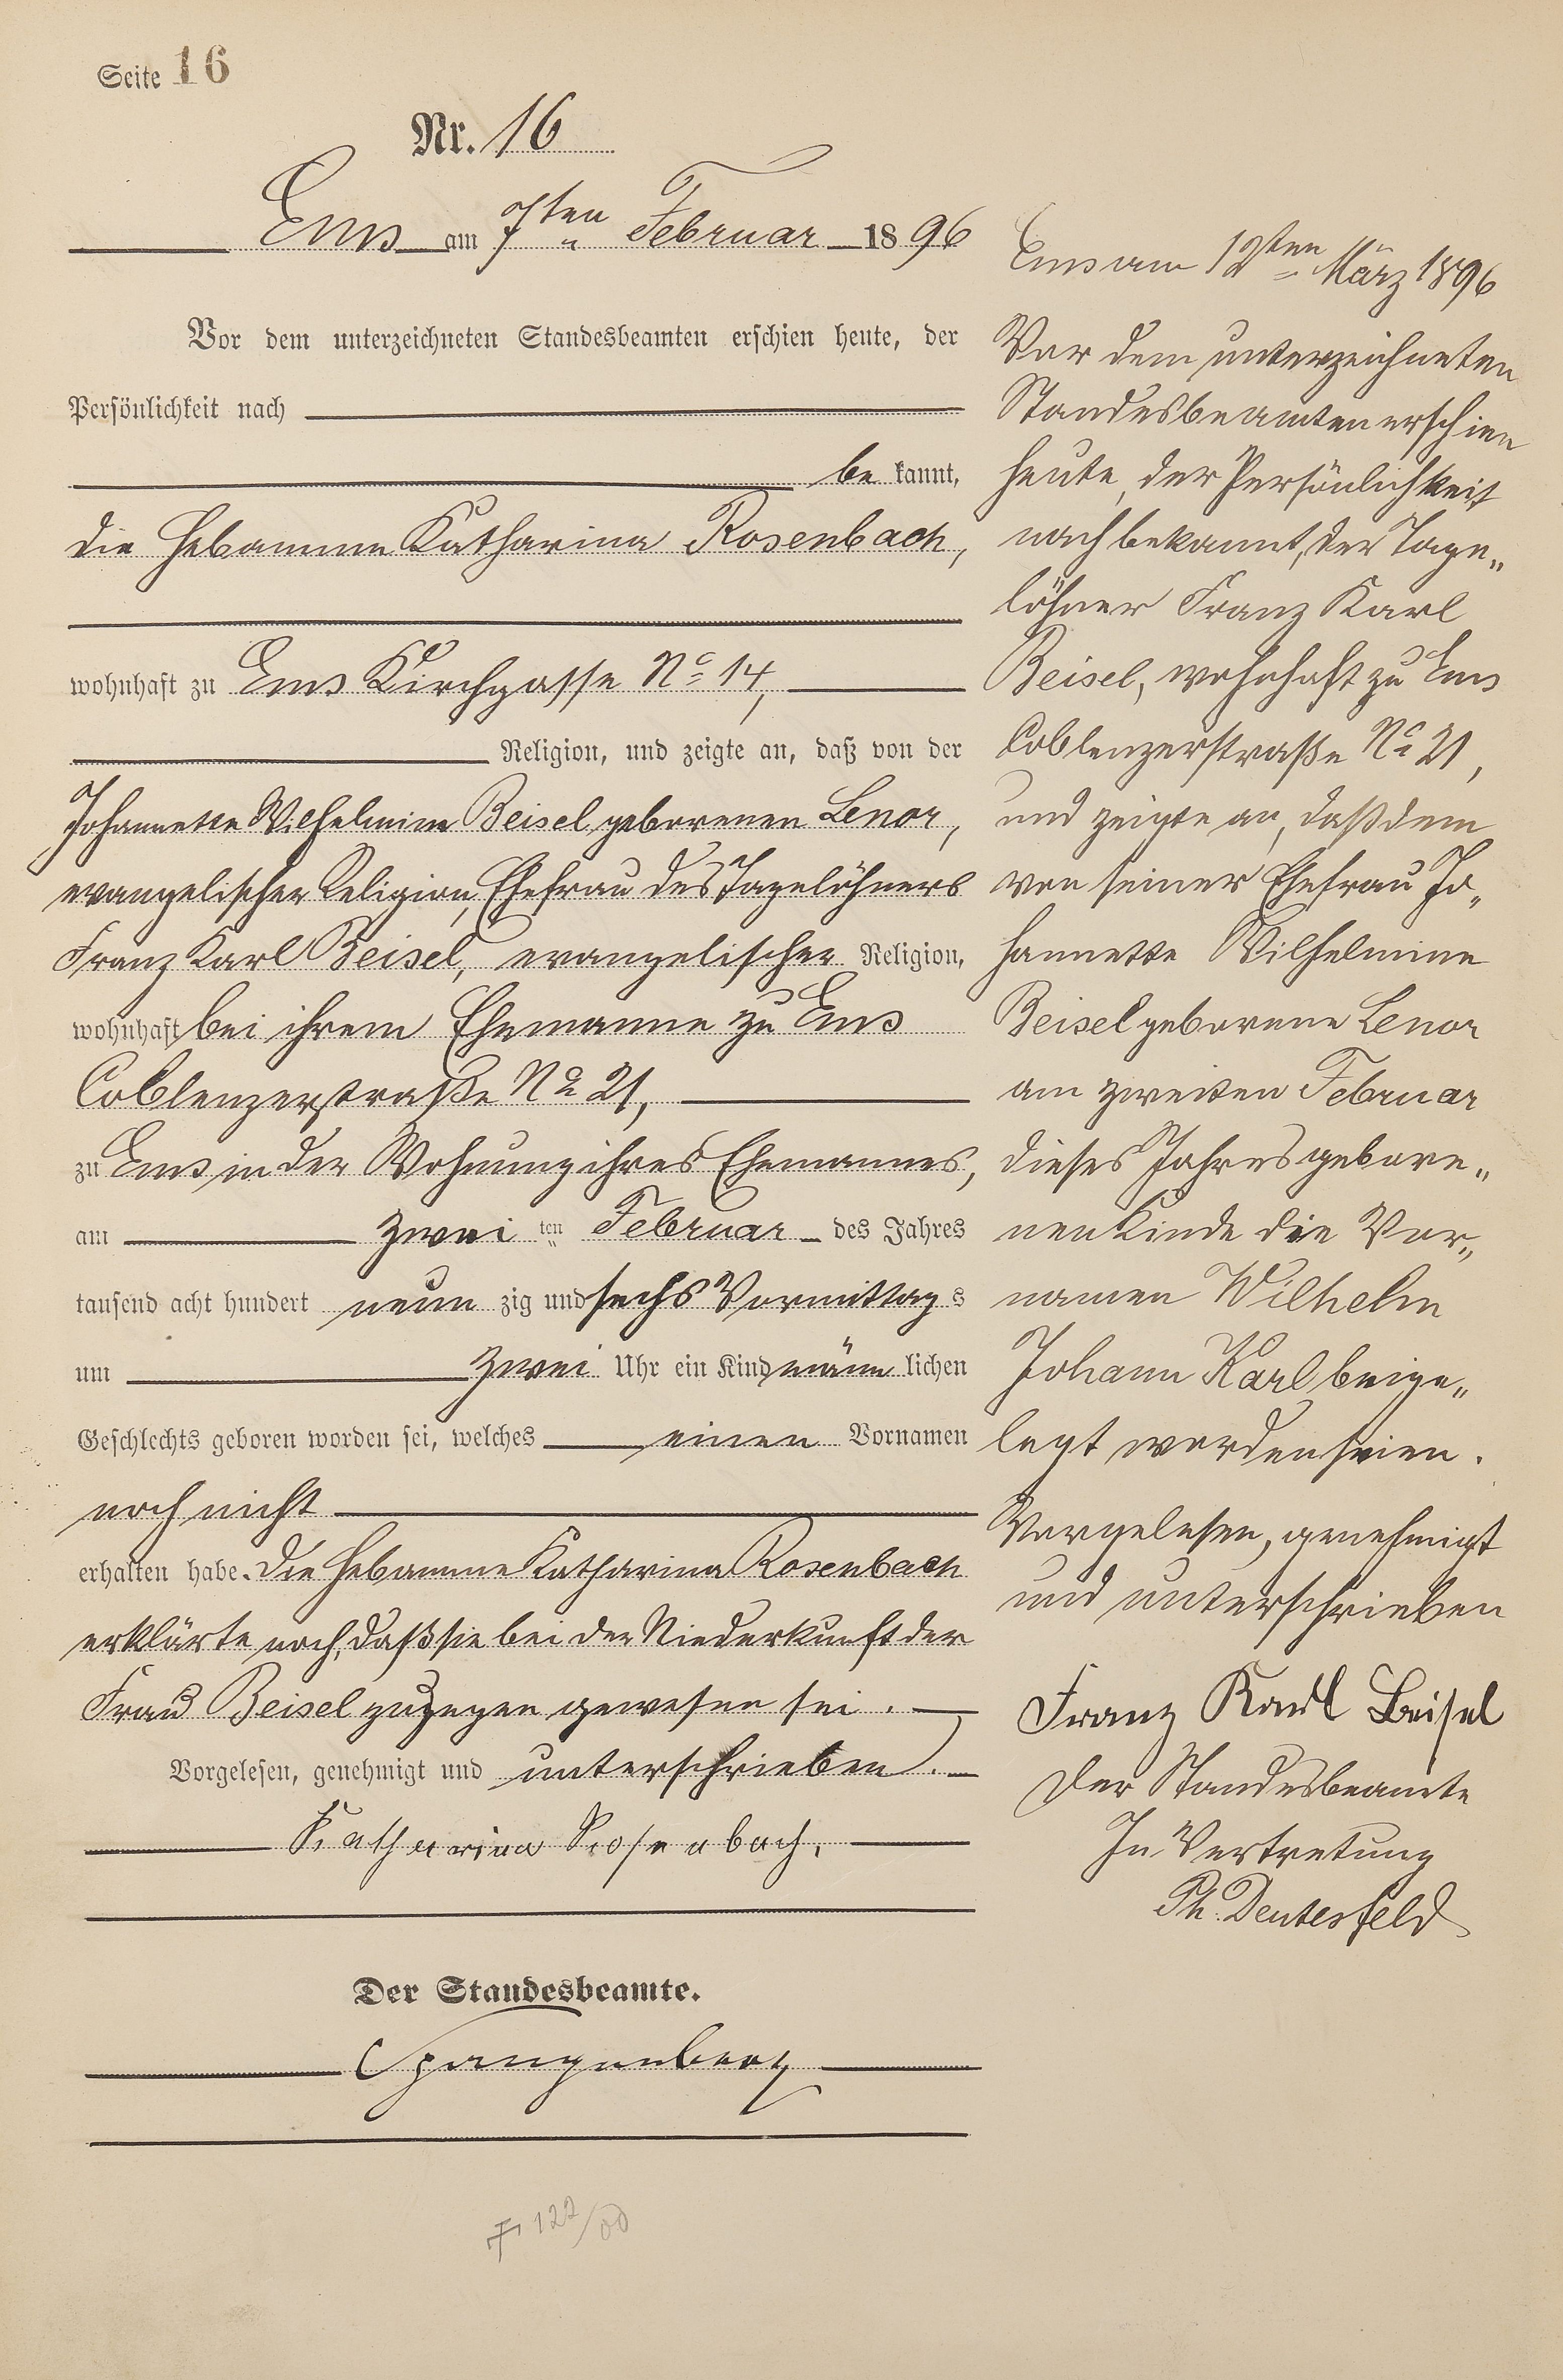 Seite 16
Nr. 16
Ems am 7ten Februar 1896
Vor dem unterzeichneten Standesbeamten erschien heute, der
Persönlichkeit nach
be kannt,
die Hebamme Katharina Rosenbach,
wohnhaft zu Ems Kirchgasse No 14,
Religion, und zeigte an, daß von der
Johannette Wilhelmine Beisel geborenen Lenor,
evangelischer Religion, Ehefrau des Tagelöhners
Franz Karl Beisel, evangelischer Religion,
wohnhaft bei ihrem Ehemanne zu Ems
Coblenzerstraße No 21,
zu Ems in der Wohnung ihres Ehemannes,
am zwei ten Februar des Jahres
tausend acht hundert neun zig und sechs Vormittag s
um zwei Uhr ein Kind männ lichen
Geschlechts geboren worden sei, welches einen Vornamen
noch nicht
erhalten habe. Die Hebamme Katharina Rosenbach
erklärte noch, daß sie bei der Niederkunft der
Frau Beisel zugegen gewesen sei.
Vorgelesen, genehmigt und unterschrieben.
Katharina Rosenbach.
Der Standesbeamte.
Spangenberg
122/00
Ems am 12ten März 1896
Vor dem unterzeichneten
Standesbeamten erschien
heute, der Persönlichkeit
nach bekannt, der Tage„
löhner Franz Karl
Beisel, wohnhaft zu Ems
Coblenzerstraße No 21,
und zeigte an, daß dem
von seiner Ehefrau Jo„
hannette Wilhelmine
Beisel geborene Lenor
am zweiten Februar
dieses Jahres gebore„
nen Kinde die Vor„
namen Wilhelm
Johann Karl beige„
legt worden seien.
Vorgelesen, genehmigt
und unterschrieben
Franz Karl Beisel
Der Standesbeamte
In Vertretung
Ph. Deutesfeld